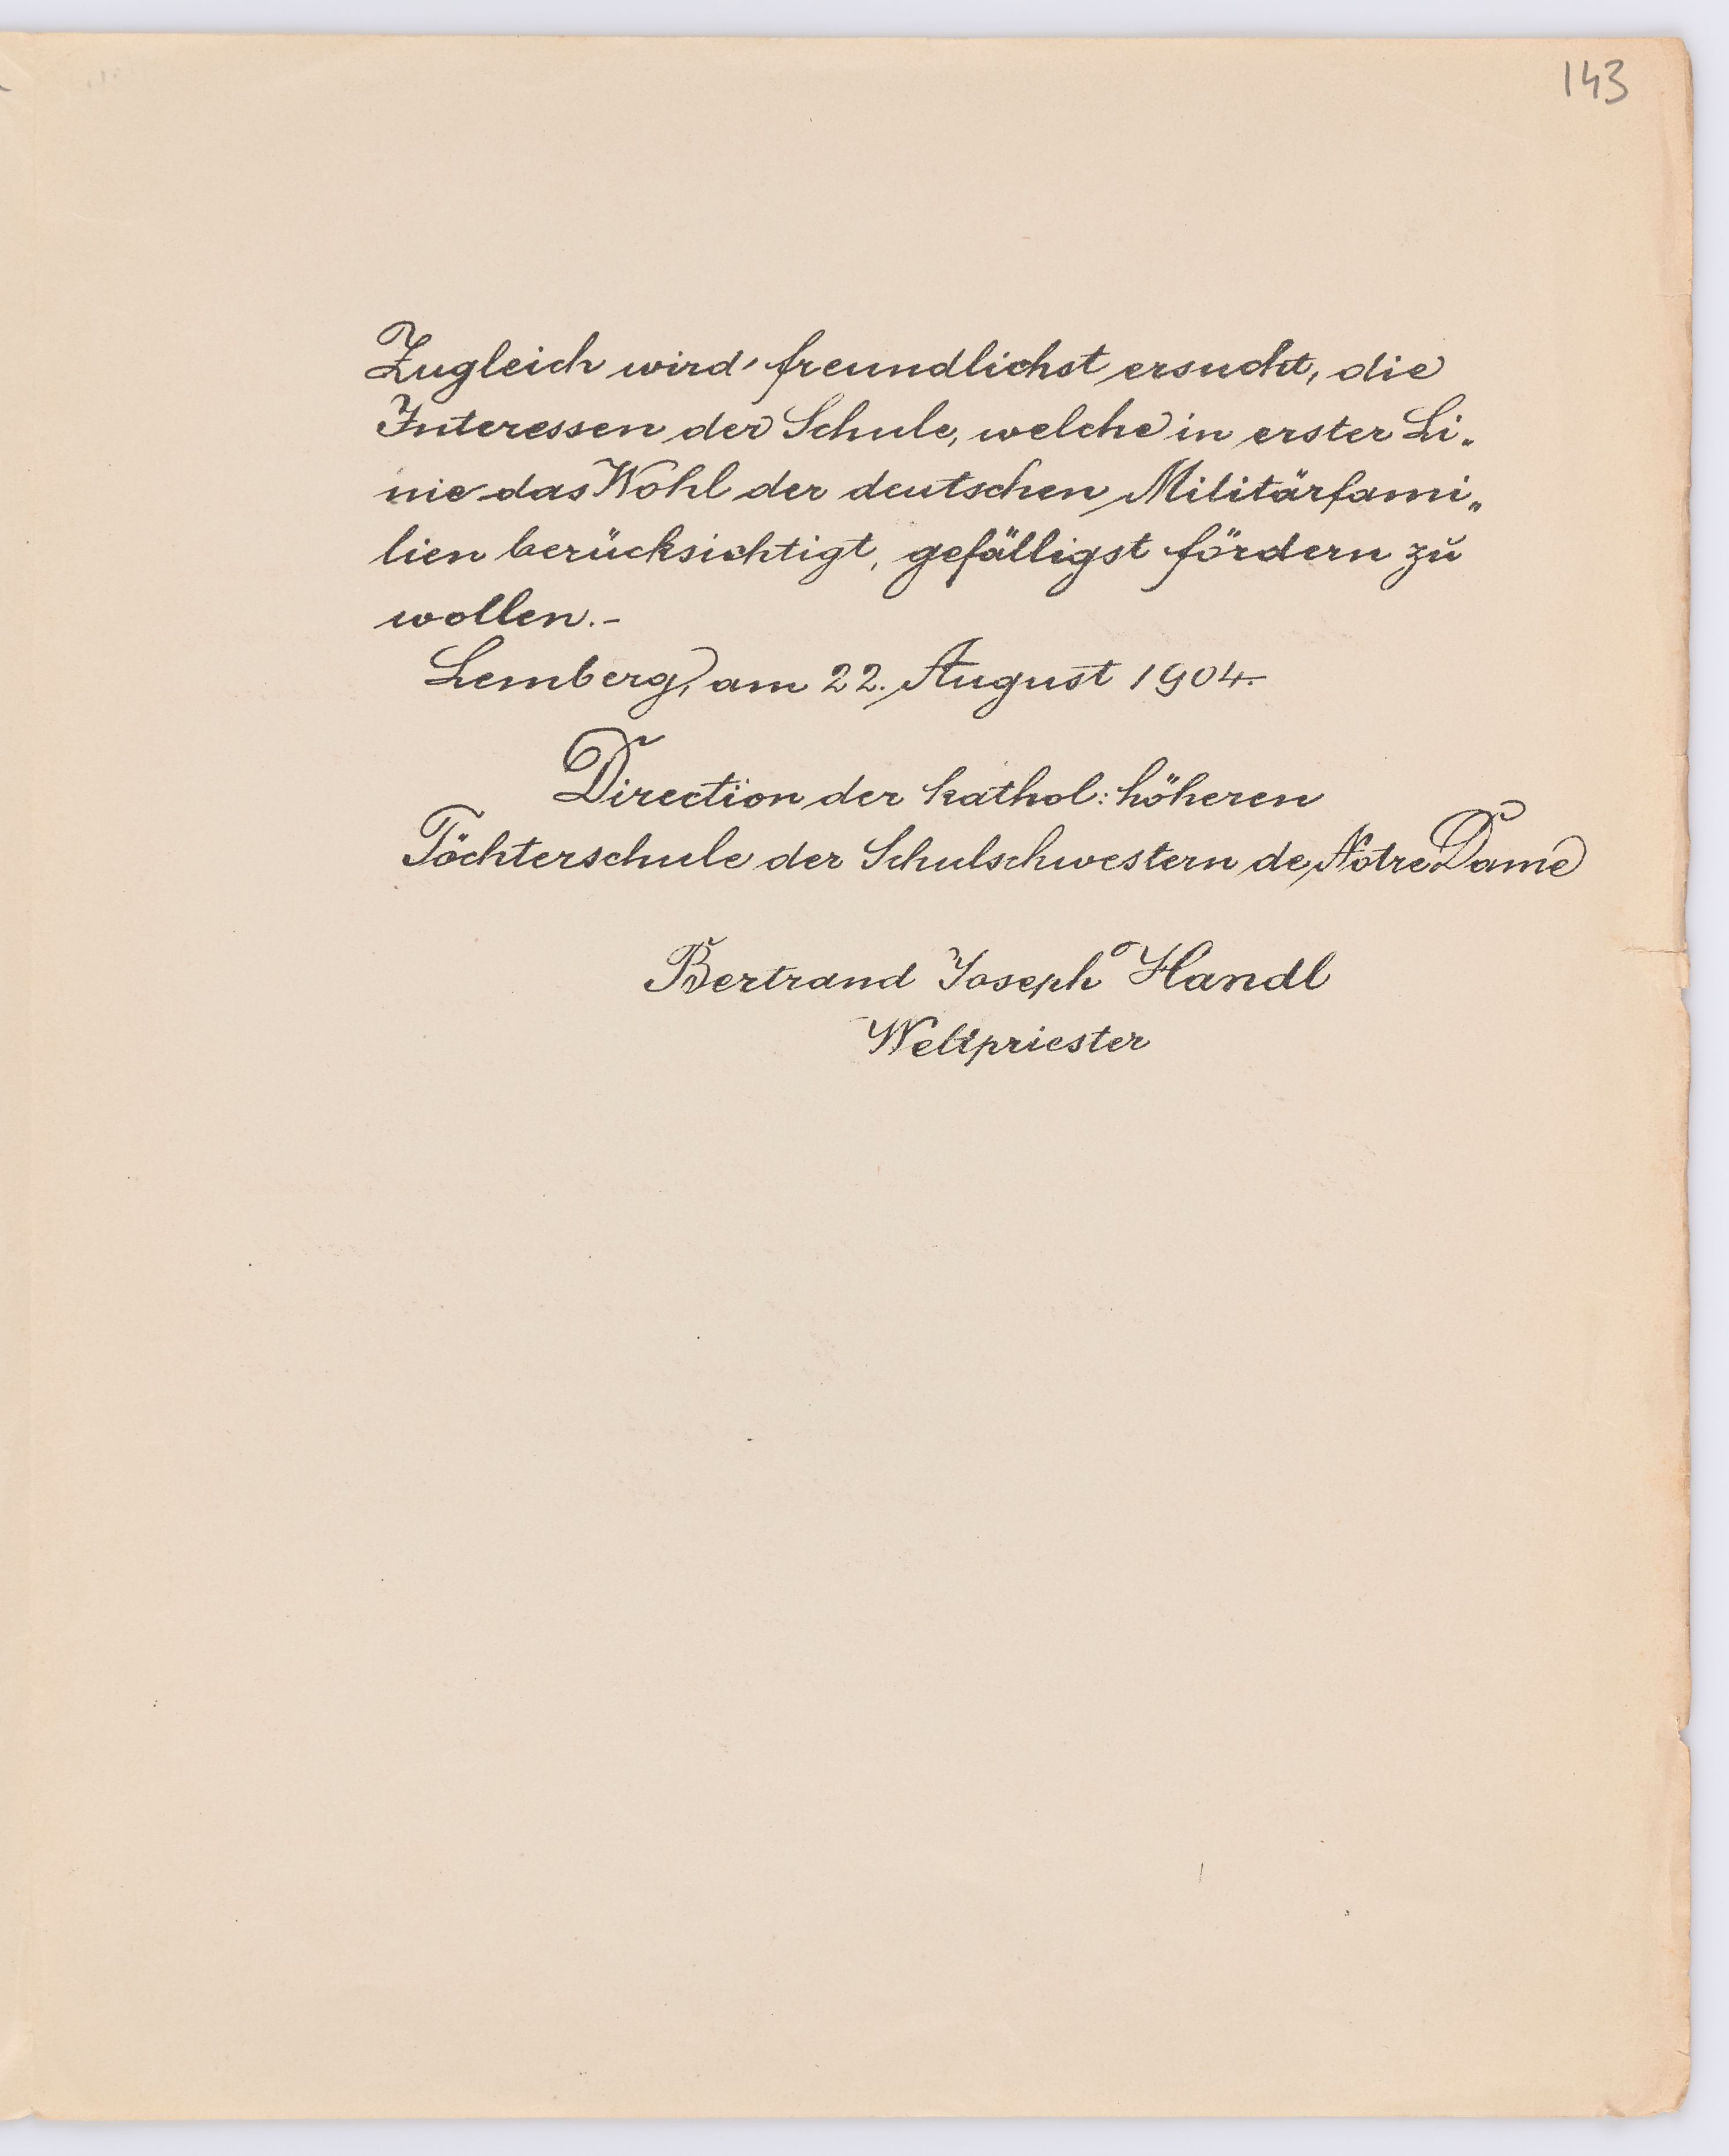 143
Zugleich wird freundlichst ersucht, die
Interessen der Schule, welche in erster Li„
nie das Wohl der deutschen Militärfami„
lien berücksichtigt, gefälligst fördern zu
wollen.-
Lemberg, am 22. August 1904.
Direction der kathol: höheren
Töchterschule der Schulschwestern de Notre Dame
Bertrand Joseph Handl
Weltpriester